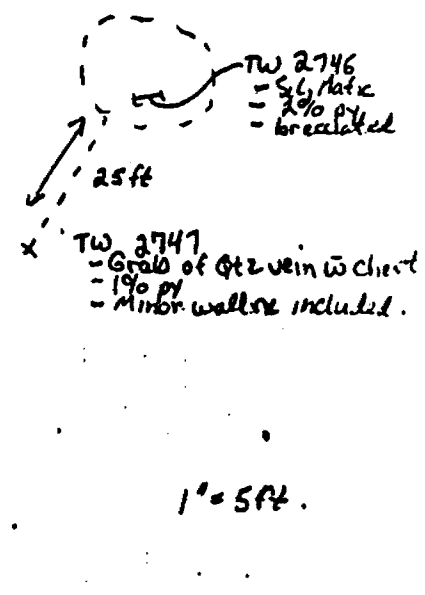 TW 2746
- Sil, Matic
- 2% py
- brecciated
25ft
x
TW 2747
- Grab of Qtz vein w̄ chert
- 1% py
- Minor wallrx included.
1" = 5ft.